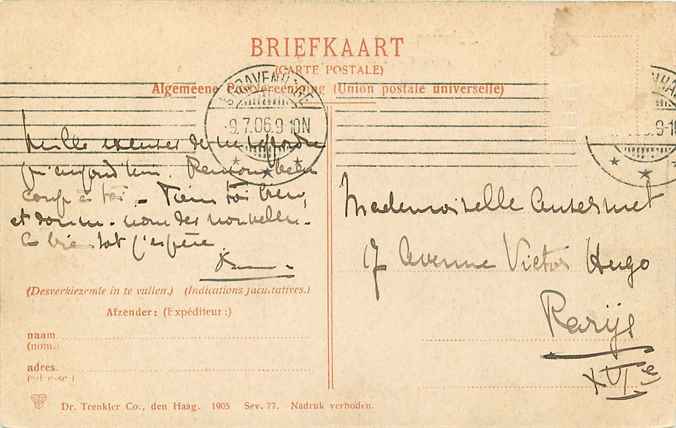 BRIEFKAART
(CARTE POSTALE)
Algemeene Postvereeniging (Union postale universelle)
'S GRAVENHAGE
9.7.06.9-10N
Mille excuses de ne répondre
qu'aujourd'hui. Pensons beau
coup à toi. Tiens toi bien,
et donne-nous des nouvelles.
à bientôt j'espère.
Mademoiselle Ansermet
17 Avenue Victor Hugo
Parijs
XVIe
(Desverkiezende in te vullen.) (Indications facultatives.)
Afzender: (Expéditeur:)
naam
(nom.)
adres.
Dr. Trenkler Co., den Haag. 1905 Sev. 77. Nadruk verboden.